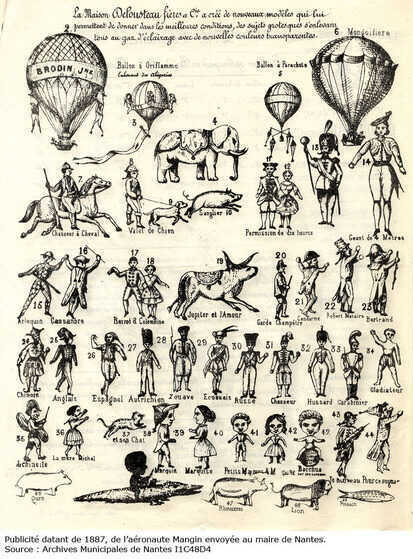 La Maison Delousteau frères & Cie a créé de nouveaux modèles qui lui
permettent de donner dans les meilleures conditions, des sujets grotesques s'enlevant
tous au gaz d'éclairage avec de nouvelles couleurs transparentes.
6 Mongolfière
BRODIN Jne
Ballon à Oriflamme
3
4
Ballon à Parachute
5
7
Chasseur à Cheval
Valet de Chien
9
Sanglier 10
11 12
Permission de dix heures
13
14
Géant de 4 Mètres
15
Arlequin
16
Cassandre
17 18
Pierrot & Colombine
19
Jupiter et l'Amour
20
Garde Champêtre
21
Gendarme
22
Robert Macaire
23
Bertrand
Chinois
25
Anglais
26
Espagnol
27
Autrichien
28
Zouave
29
Ecossais
30
Russe
31
Chasseur
32
Hussard
33
Carabinier
34
Gladiateur
35
Polichinelle
36
La mère Michel
et son Chat
38
Marquis
39
Marquise
40 41
Petits
42
Bacchus
43
44
45
Ours
47
Rhinocéros
48
Lion
Poisson
Publicité datant de 1887, de l'aéronaute Mangin envoyée au maire de Nantes.
Source : Archives Municipales de Nantes I1C48D4